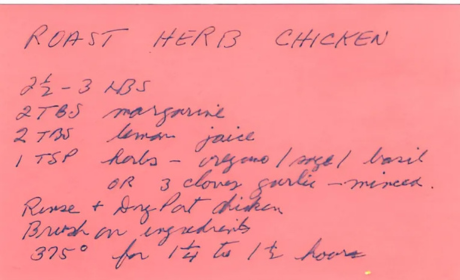 ROAST HERB CHICKEN
2½ - 3 LBS
2 TBS margarine
2 TBS lemon juice
1 TSP herbs - oregano / sage / basil
OR 3 cloves garlic - minced.
Rinse + Dry Pat chicken
Brush on ingredients
375° for 1¼ to 1½ hours